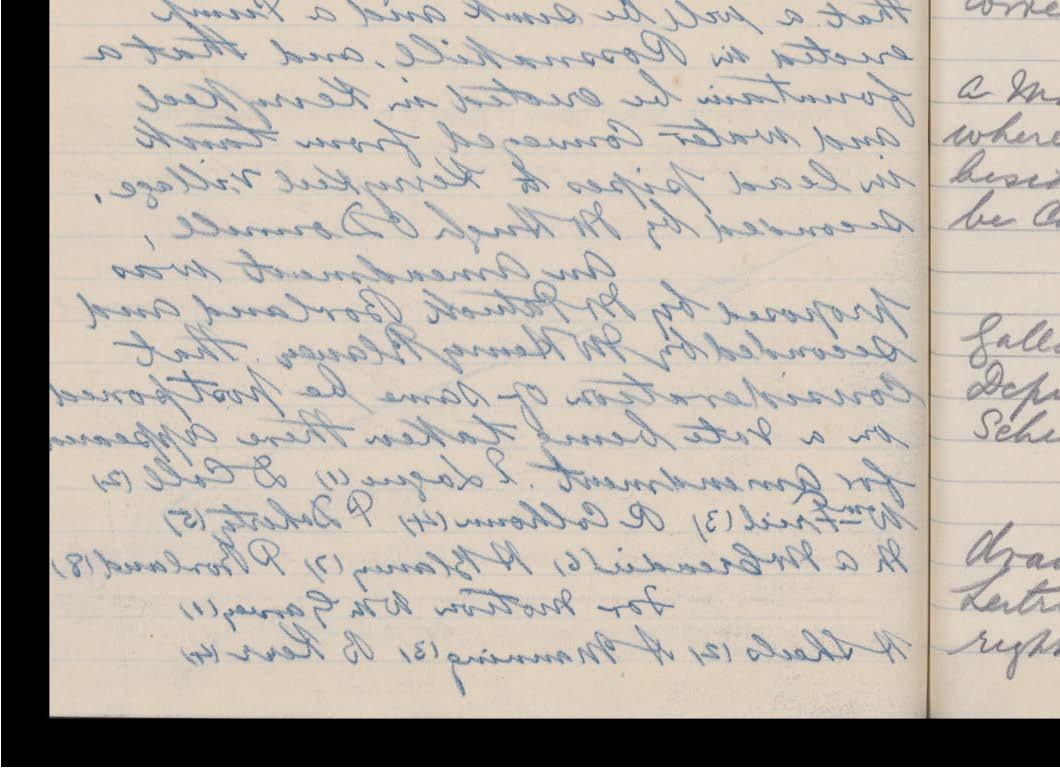 that a well be sunk and a Pump
erected in Rossnakill, and that a
fountain be erected in Kerrykeel
and water conveyed from tank
in lead pipes to Kerrykeel village.
seconded by Mr Hugh O'Donnell,
An amendment was
proposed by Mr Patrick Borland and
seconded by Mr Henry Blaney, that
Consideration of same be postponed
on a vote being taken there appeared
for amendment. Logue (1), D Coll (2),
Wm Friel (3), R Colhoun (4), P Doherty (5)
M A (6), H Blaney (7), P Borland (8),
For Motion Wm (1),
H Sheils (2), H Manning (3), B Kerr (4),
a
where
be
right